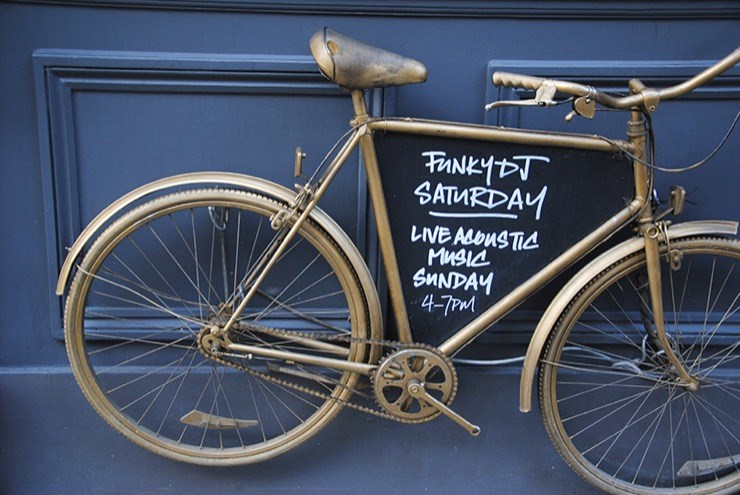 FUNKY DJ
SATURDAY
LIVE ACOUSTIC
MUSIC
SUNDAY
4-7PM